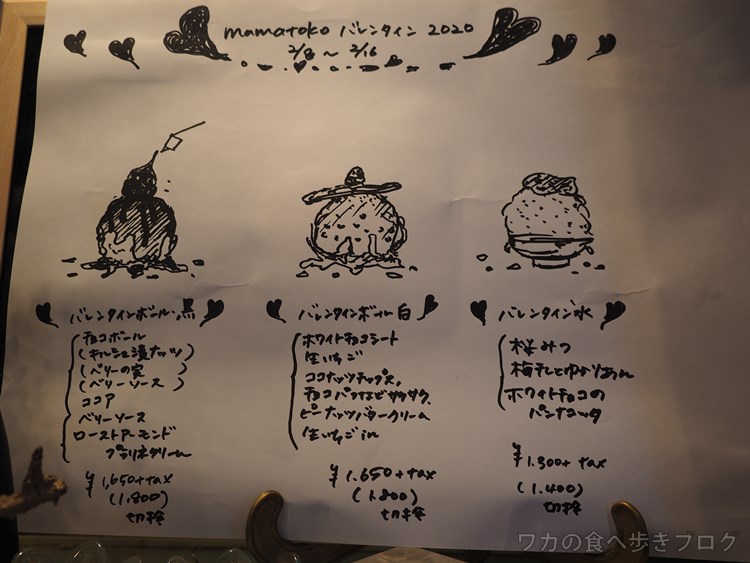 mamatoko バレンタイン 2020
2/8 ~ 2/16
バレンタインボール・黒
チョコボール
(キルシュ漬ナッツ)
(ベリーの実)
(ベリーソース)
ココア
ベリーソース
ローストアーモンド
プラリネクリーム
¥1,650+tax
(1,800)
切捨
バレンタインボール 白
ホワイトチョコシート
生いちご
ココナッツチップス,
チョコパフなどザクザク
ピーナッツバタークリーム
生いちご in
¥1.650+tax
(1.800)
切捨
バレンタイン氷
桜みつ
梅干しとゆかりあん
ホワイトチョコの
パンナコッタ
¥1.300+tax
(1.400)
切捨
ワカの食べ歩きブログ